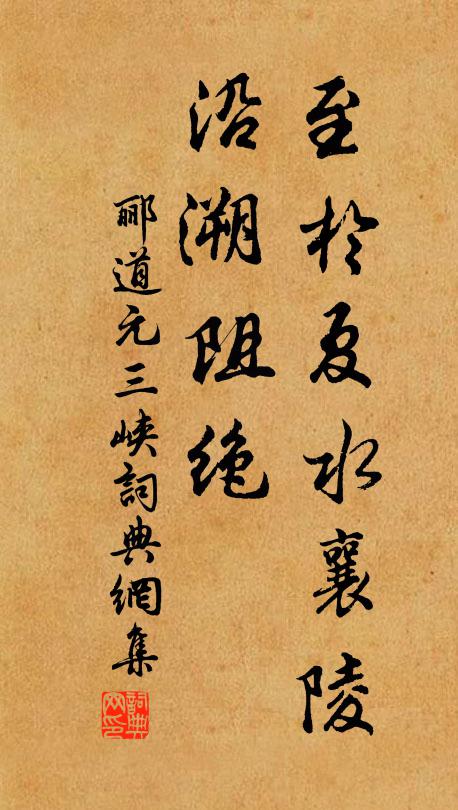 至於夏水襄陵
沿溯阻绝
郦道元三峡詞典網集
詞典网印